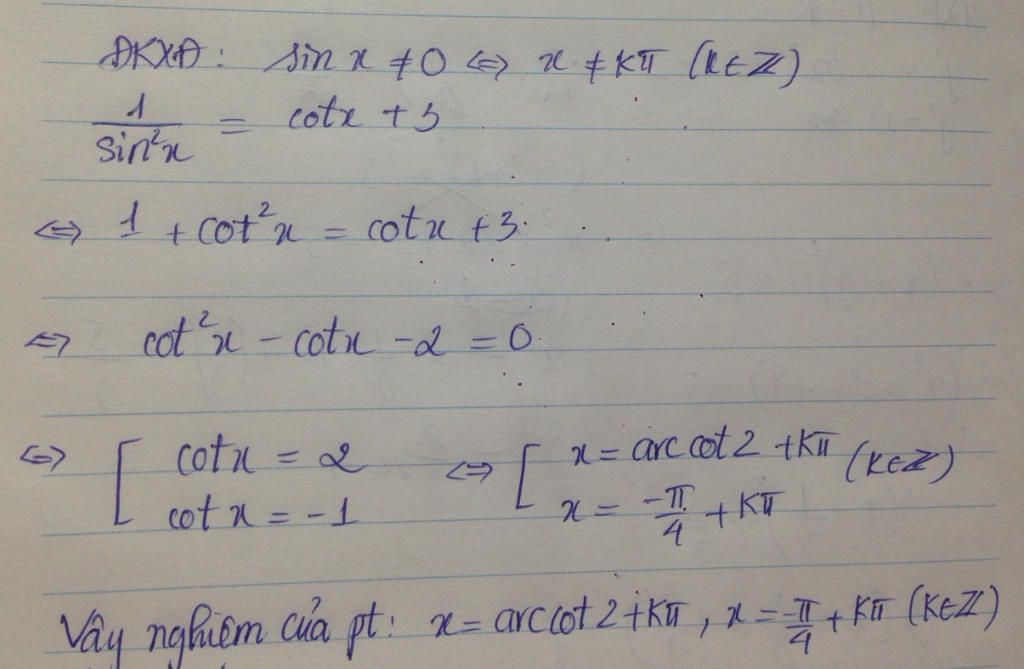 ĐKXĐ: sin x ≠ 0 ⇔ x ≠ kπ (k∈Z)
1/sin²x = cotx + 3
⇔ 1 + cot²x = cotx + 3
⇔ cot²x - cotx - 2 = 0
⇔ [ cotx = 2 ⇔ [ x = arccot2 + kπ (k∈Z)
cotx = -1 x = -π/4 + kπ
Vậy nghiệm của pt: x = arccot2 + kπ, x = -π/4 + kπ (k∈Z)